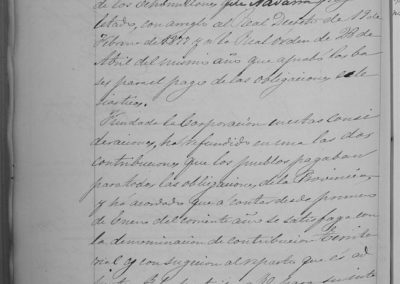 de los dos millones que Navarra
letado, con arreglo al Real Decreto de 19 de
Febrero de 1877 y a la Real orden de 28 de
Abril del mismo año que aprobó las ba
ses para el pago de las obligaciones ecle
siásticas.
Fundada la Corporacion en estas consi
deraciones, ha refundido en una las dos
contribuciones que los pueblos pagaban
para todas las obligaciones de la Provincia,
y ha acordado que a contar desde primero
de Enero del corriente año se satisfaga con
la denominacion de contribucion territo
rial y con sugecion al reparto que es ad